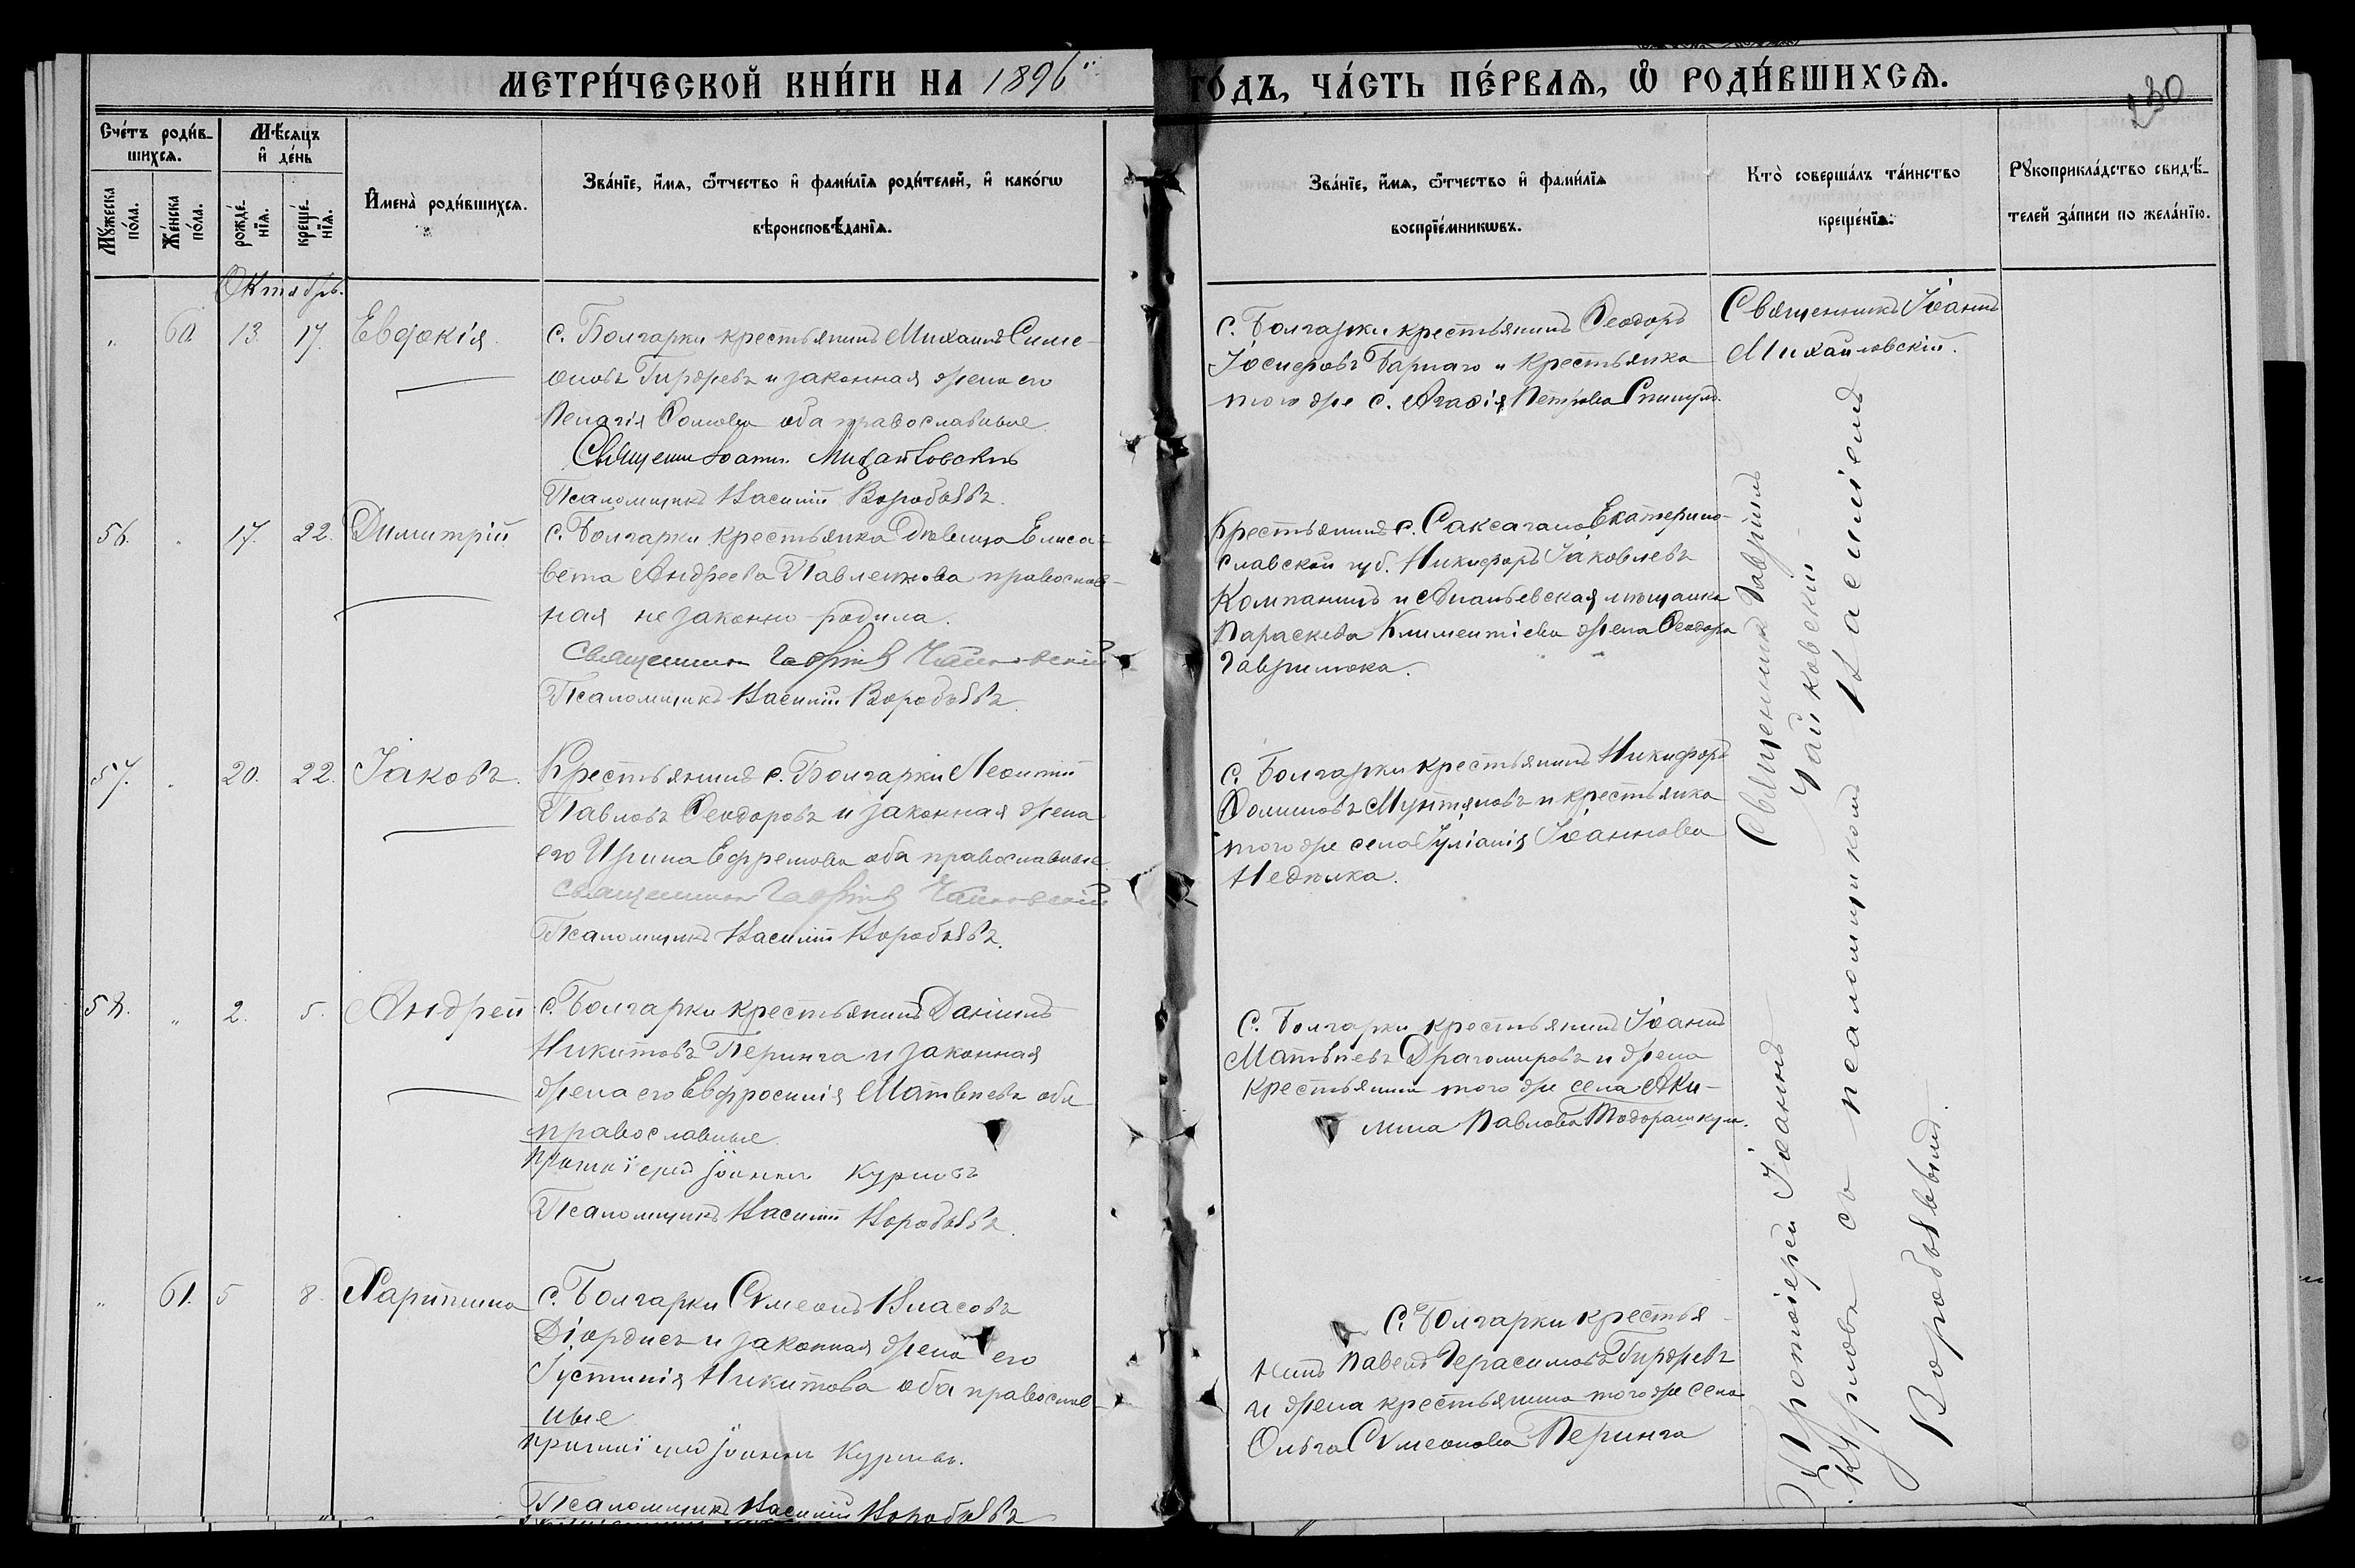 МЕТРИ́ЧЕСКОЙ КНИ́ГИ НА 1896
ГО́ДЪ, ЧА́СТЬ ПЕ́РВАЯ, Ѿ РОДИ́ВШИХСЯ.
230
Сче́тъ роди́в-
шихся.
Мѣсяцъ
и҆ де́нь
Мꙋ́жеска
по́ла.
Же́нска
по́ла.
рожде́-
нїя.
креще́-
нїя.
И҆мена̀ роди́вшихся.
Зва́нїе, и҆́мя, ѻ҆́тчество и҆ фами́лїя роди́телей, и҆ како́гѡ
вѣроисповѣ́данїя.
Зва́нїе, и҆́мя, ѻ҆́тчество и҆ фами́лїя
воспрїе́мникѡвъ.
Кто̀ соверша́лъ та́инство
креще́нїя.
Рꙋкоприкла́дство свидѣ́-
телей за́писи по жела́нїю.
Октябрь.
" 60. 13. 17. Евдокія
с. Болгарки крестьянинъ Михаилъ Симе-
оновъ Гиржевъ и законная жена его
Пелагія Ѳомова оба православные
Священ Іоаннъ Михайловскій
Псаломщикъ Василій Воробьѣвъ.
с. Болгарки крестьянинъ Ѳеодоръ
Іосифовъ и крестьянка
того же с. Агафія Петрова
Священникъ Іоаннъ
Михайловскій.
56. " 17. 22. Димитрій
с. Болгарки крестьянка дѣвица Елиса-
вета Андреева Павленкова православ-
ная незаконно родила.
Священникъ Гавріилъ Чайковскій
Псаломщикъ Василій Воробьѣвъ.
Крестьянинъ с. Саксагана Екатерино-
славской губ. Никифоръ Іаковлевъ
Компаницъ и Ананьевская мѣщанка
Параскева Климентіева жена Ѳеодора
Гаврилюка.
57. " 20. 22. Іаковъ.
Крестьянинъ с. Болгарки Леонтій
Павловъ Ѳеодоровъ и законная жена
его Ирина Ефремова оба православные
Священникъ Гавріилъ Чайковскій
Псаломщикъ Василій Воробьѣвъ.
с. Болгарки крестьянинъ Никифоръ
Ѳоминовъ Мунтяновъ и крестьянка
того же села Іуліанія Іоаннова
Недѣлка.
Священникъ Гавріилъ
Чайковскій
58. " 2. 5. Андрей
с. Болгарки крестьянинъ Даніилъ
Никитовъ Перинга и законная
жена его Евфросинія Матвѣева оба
православные.
Протоіерей Іоаннъ Курловъ
Псаломщикъ Василій Воробьѣвъ.
С. Болгарки крестьянинъ Іоаннъ
Матвѣевъ Драгомировъ и жена
крестьянина того же села Аки-
лина Павлова Тодорашкула.
" 61. 5 8. Харитина
с. Болгарки Сѵмеонъ Власовъ
Діордіевъ и законная жена его
Іустинія Никитова оба православ-
ные
Протоіерей Іоаннъ Курловъ.
Псаломщикъ Василій Воробьѣвъ
С. Болгарки крестья-
нинъ Павелъ Герасимовъ Гиржевъ
и жена крестьянина того же села
Ольга Сѵмеонова Перинга
Протоіерей Іоаннъ
Курловъ съ псаломщикомъ Василіемъ
Воробьѣвымъ.